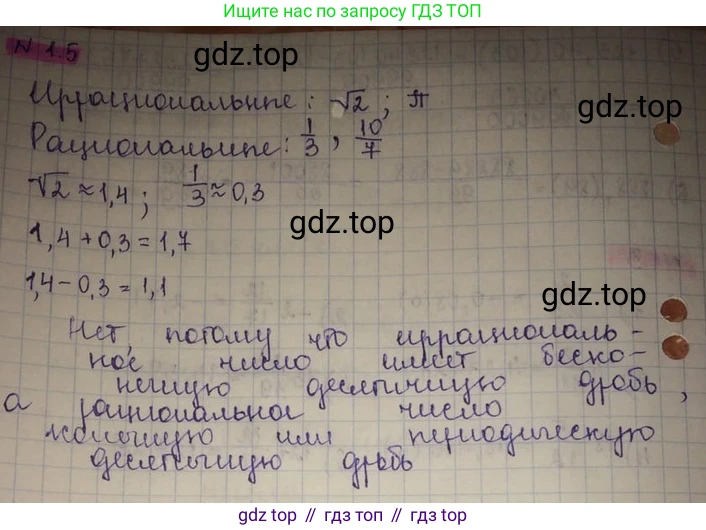 Ищите нас по запросу ГДЗ ТОП
gdz.top
N 1.5
Иррациональные: √2; π
gdz.top
Рациональные: 1/3, 10/7
√2 ≈ 1,4; 1/3 ≈ 0,3
gdz.top
1,4 + 0,3 = 1,7
1,4 - 0,3 = 1,1
gdz.top
Нет, потому что иррациональ-
ное число имеет беско-
нечную десятичную дробь,
а рациональное число
конечную или периодическую
десятичную дробь
gdz.top // гдз топ // gdz.top // гдз топ